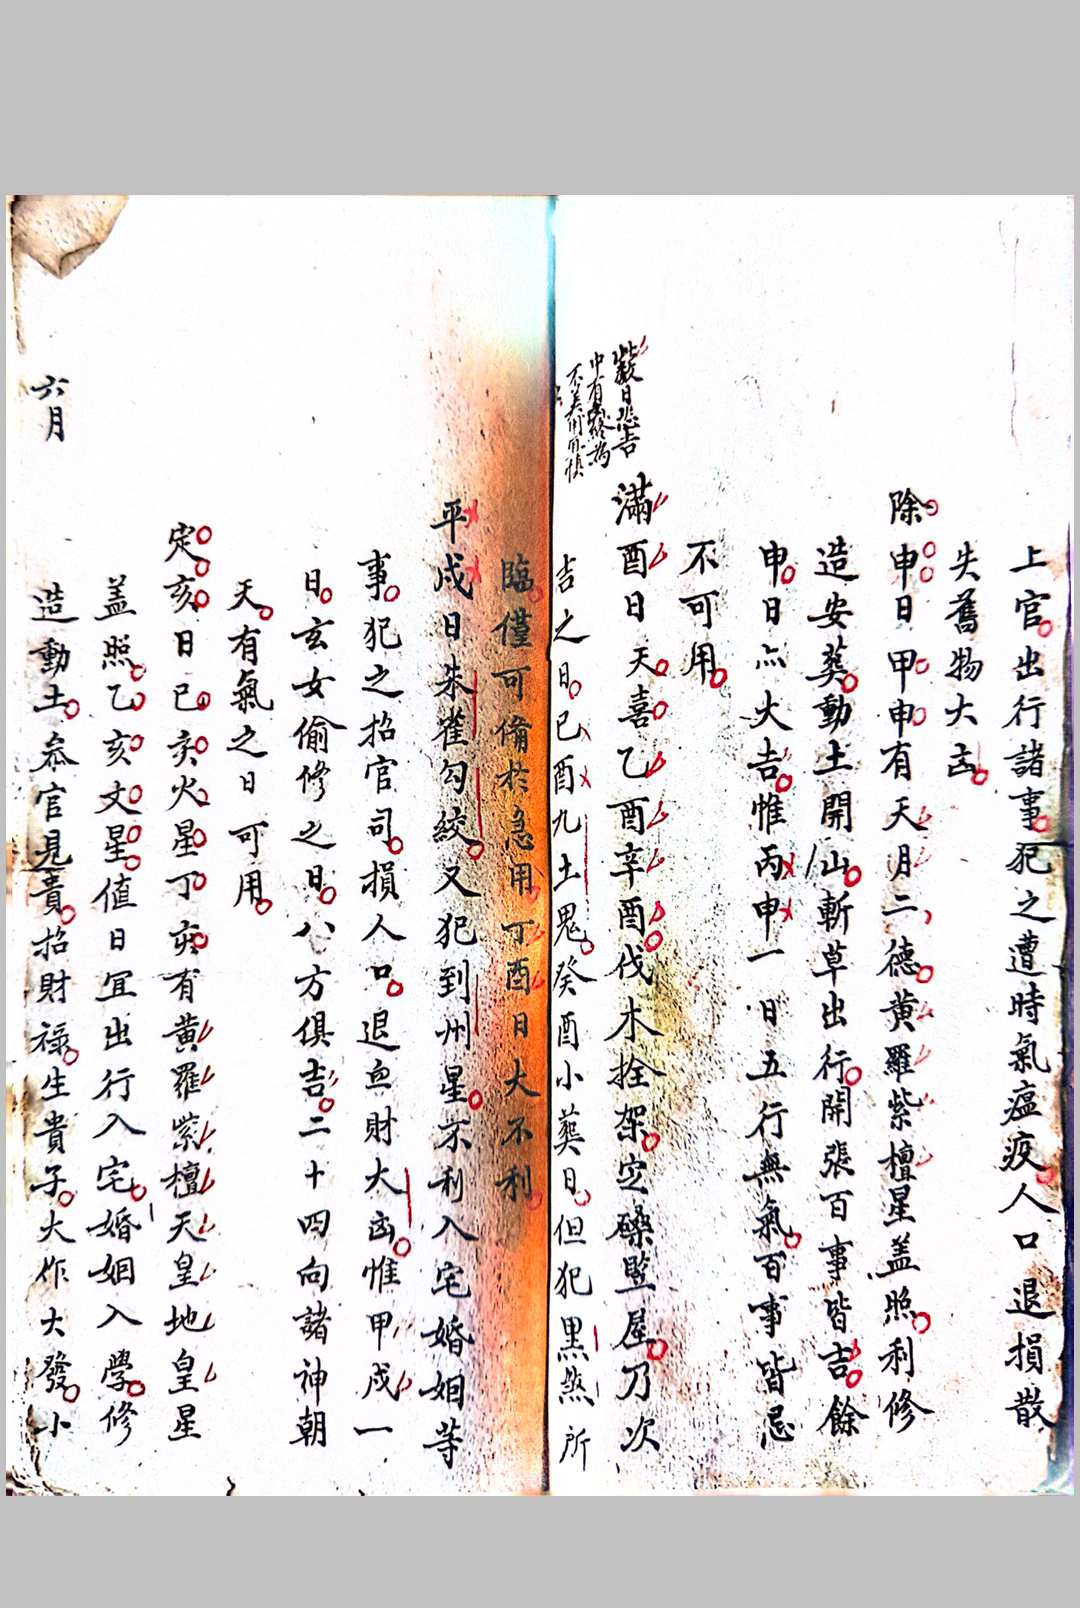 上官出行諸事犯之遭時氣瘟疫人口退損散
失舊物大凶
除申日甲申有天月二德黃羅紫檀星盖照利修
造安葬動土開山斬草出行開張百事皆吉餘
申日亦大吉惟丙申一日五行無氣百事皆忌
不可用
滿酉日天喜乙酉辛酉伐木拴架定磉豎屋乃次
吉之日己酉九土鬼癸酉小葬日但犯黑煞所
臨僅可備於急用丁酉日大不利
平戌日朱雀勾絞又犯到州星不利入宅婚姻等
事犯之招官司損人口退血財大凶惟甲戌一
日玄女偷修之日八方俱吉二十四向諸神朝
天有氣之日可用
定亥日己亥火星丁亥有黃羅紫檀天皇地皇星
盖照乙亥文星值日宜出行入宅婚姻入學修
造動土叅官見貴招財祿生貴子大作大發小
六月